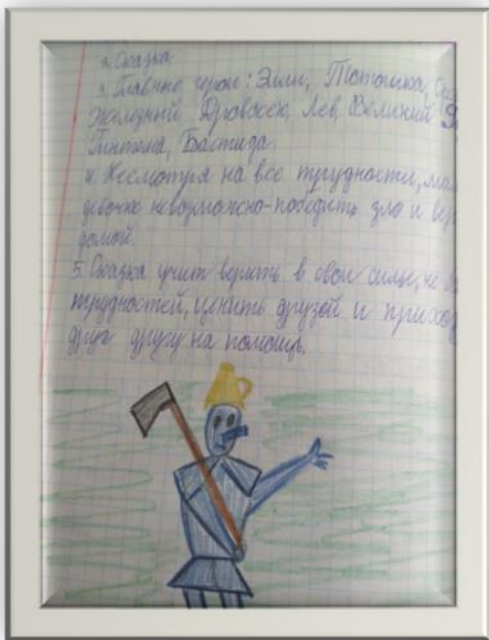 2. Сказка
3. Главные герои: Элли, Тотошка,
Железный Дровосек, Лев, Великий
Гингема, Бастинда.
4. Несмотря на все трудности,
девочке невозможно-победить зло и
домой.
5. Сказка учит верить в свои силы, не
трудностей, ценить друзей и
друг другу на помощь.